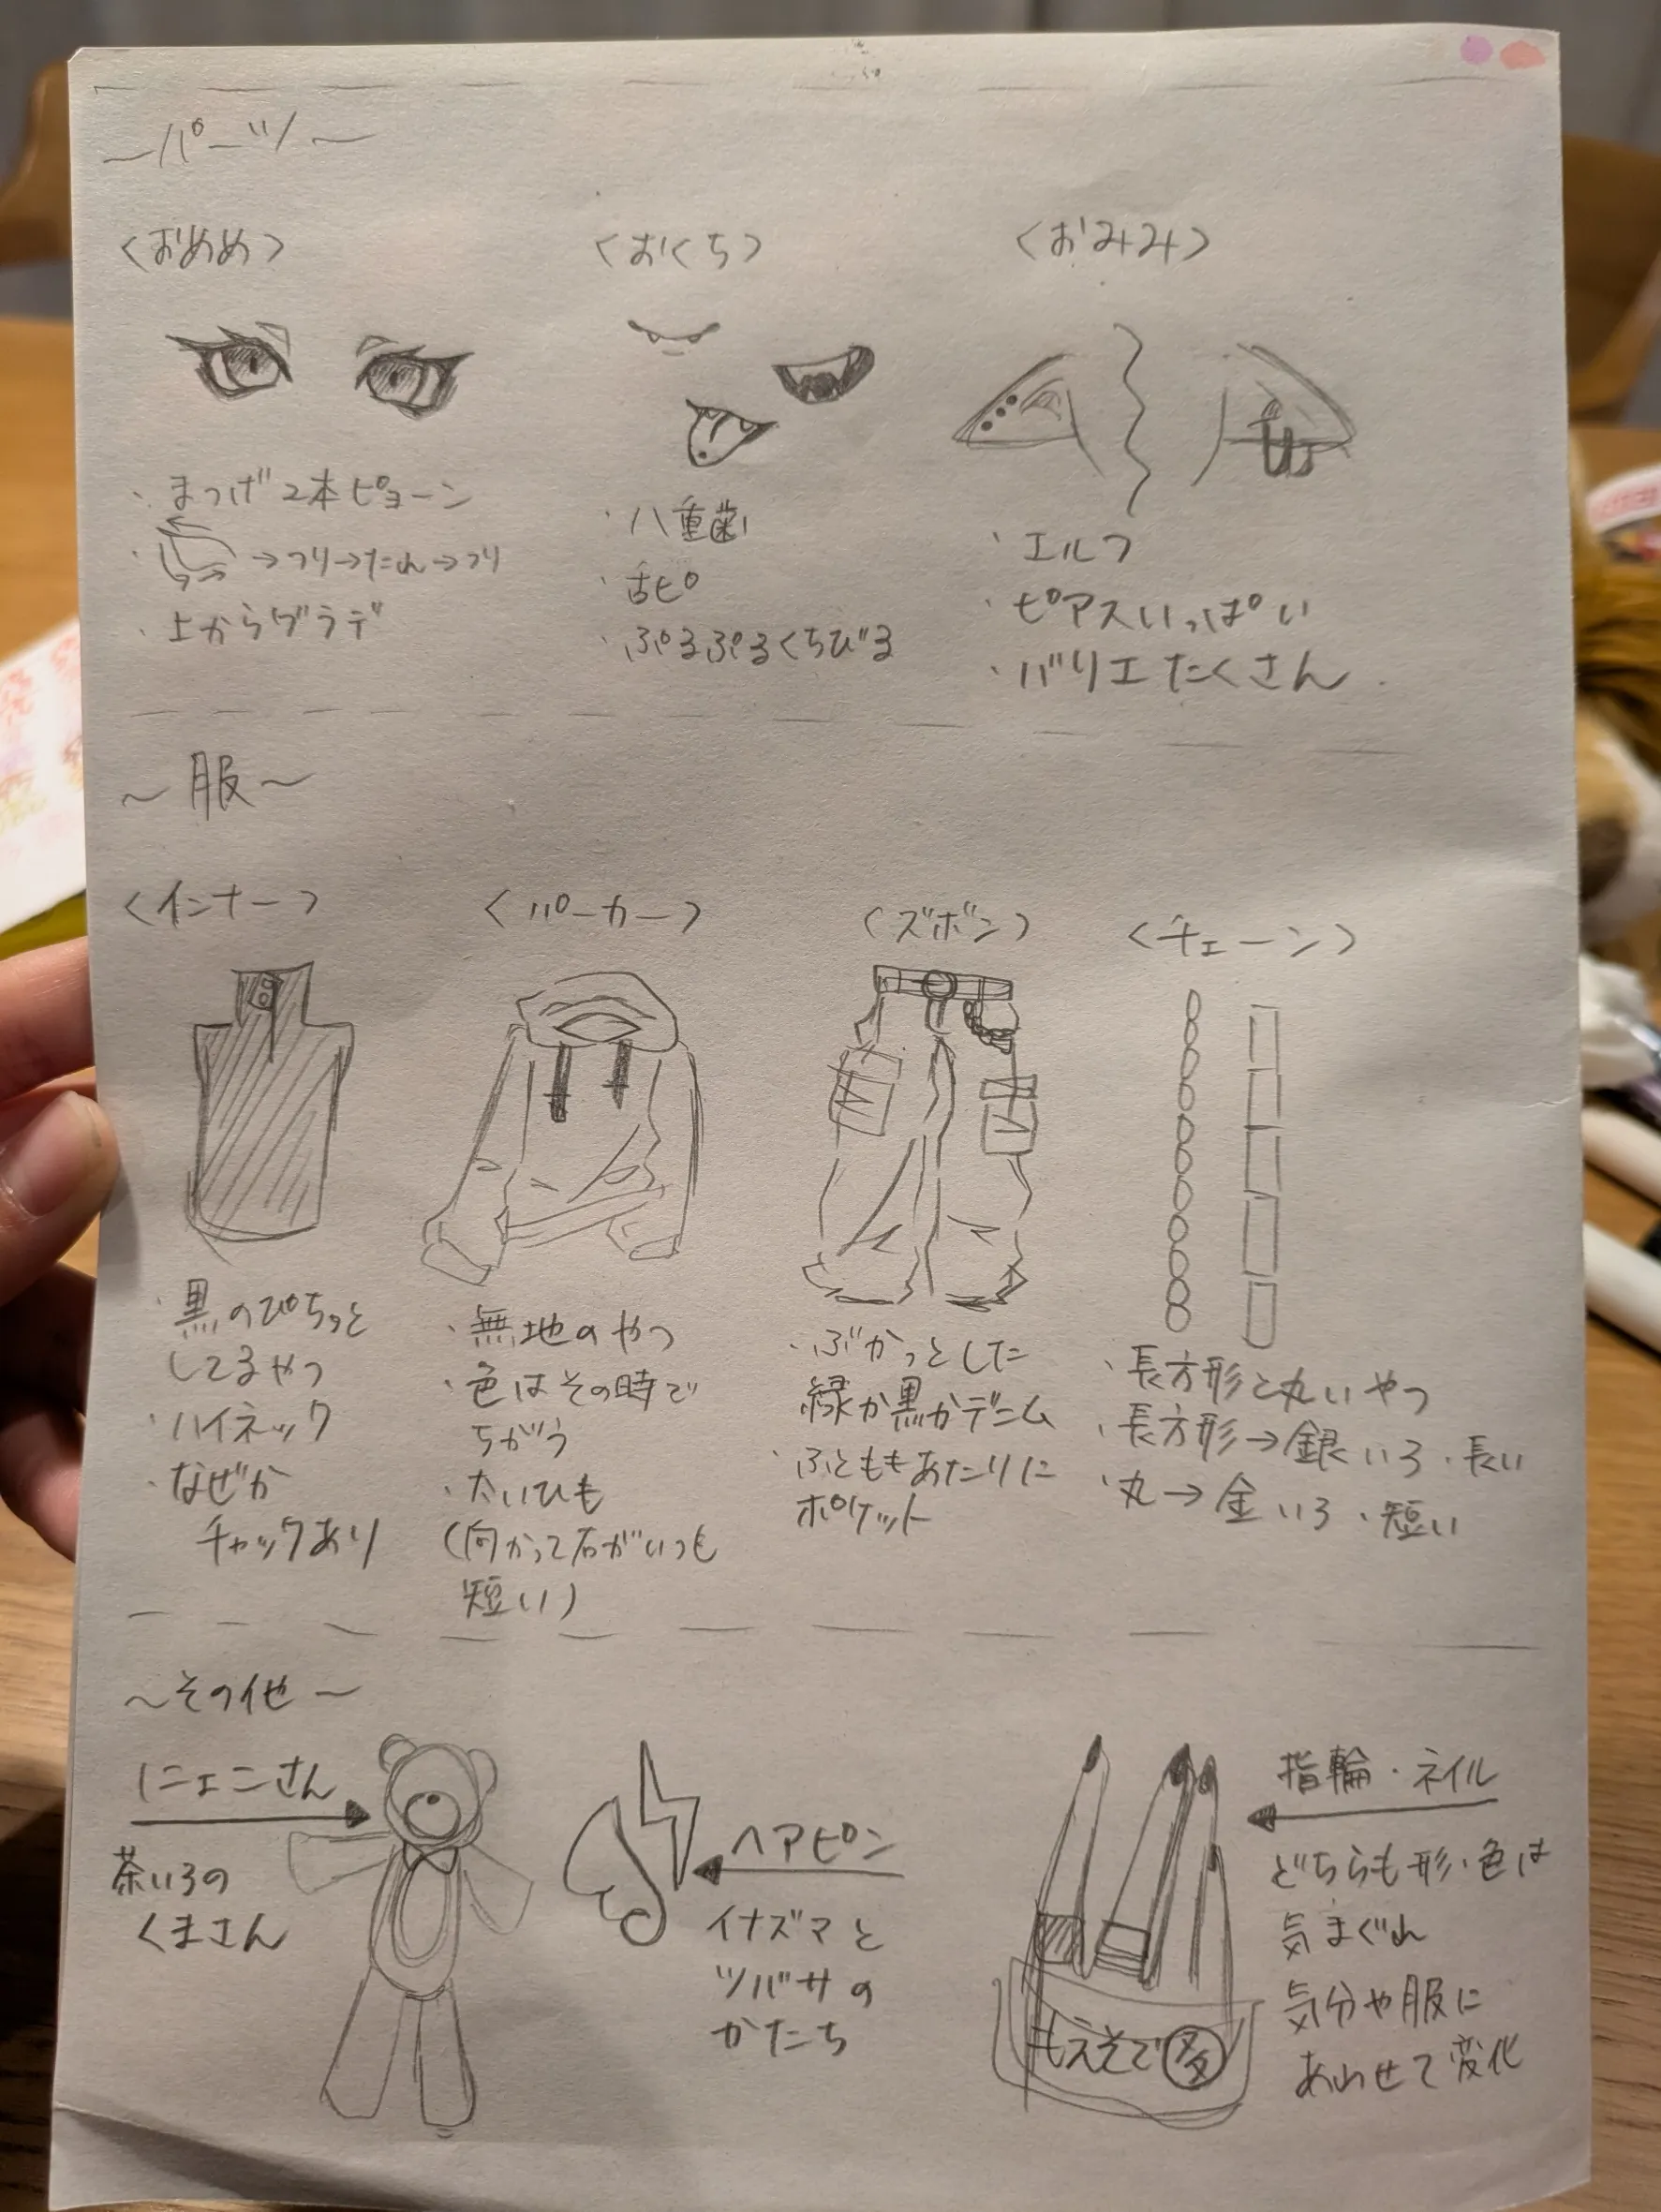 ～パーツ～
〈おめめ〉
・まつげ2本ピョーン
・→つり→たれ→つり
・上からグラデ
〈おくち〉
・八重歯
・舌ピ
・ぷるぷるくちびる
〈おみみ〉
・エルフ
・ピアスいっぱい
・バリエたくさん
～服～
〈インナー〉
・黒のぴちっと
してるやつ
・ハイネック
・なぜか
チャックあり
〈パーカー〉
・無地のやつ
・色はその時で
ちがう
・太いひも
(向かって右がいつも
短い)
〈ズボン〉
・ぶかっとした
緑か黒かデニム
・ふとももあたりに
ポケット
〈チェーン〉
・長方形と丸いやつ
・長方形→銀いろ・長い
・丸→金いろ・短い
～その他～
にェニさん
茶いろの
くまさん
ヘアピン
イナズマと
ツバサの
かたち
もえそで多
指輪・ネイル
どちらも形・色は
気まぐれ
気分や服に
あわせて変化